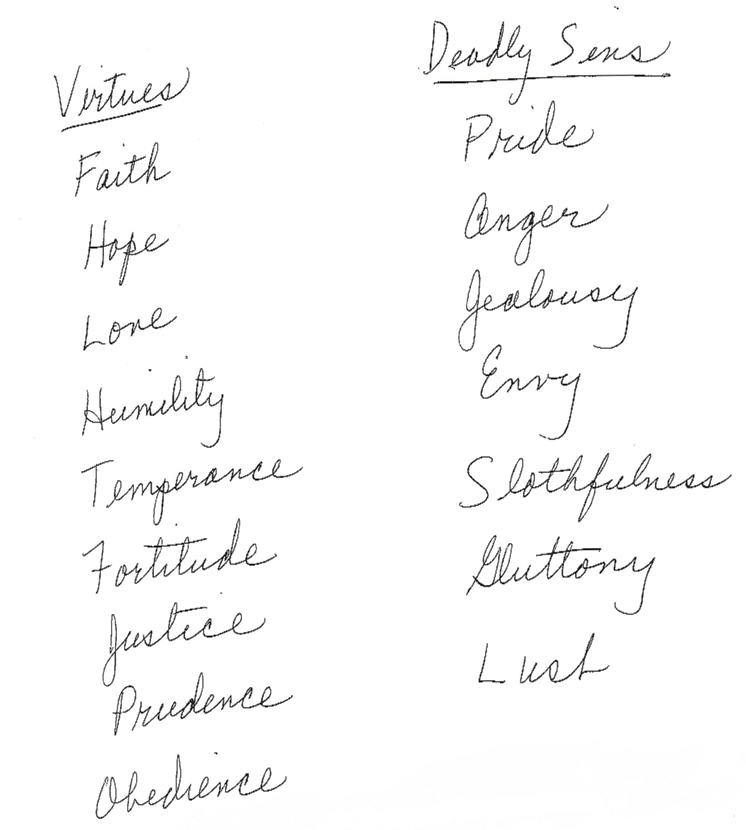 Virtues
Faith
Hope
Love
Humility
Temperance
Fortitude
Justice
Prudence
Obedience
Deadly Sins
Pride
Anger
Jealousy
Envy
Slothfulness
Gluttony
Lust